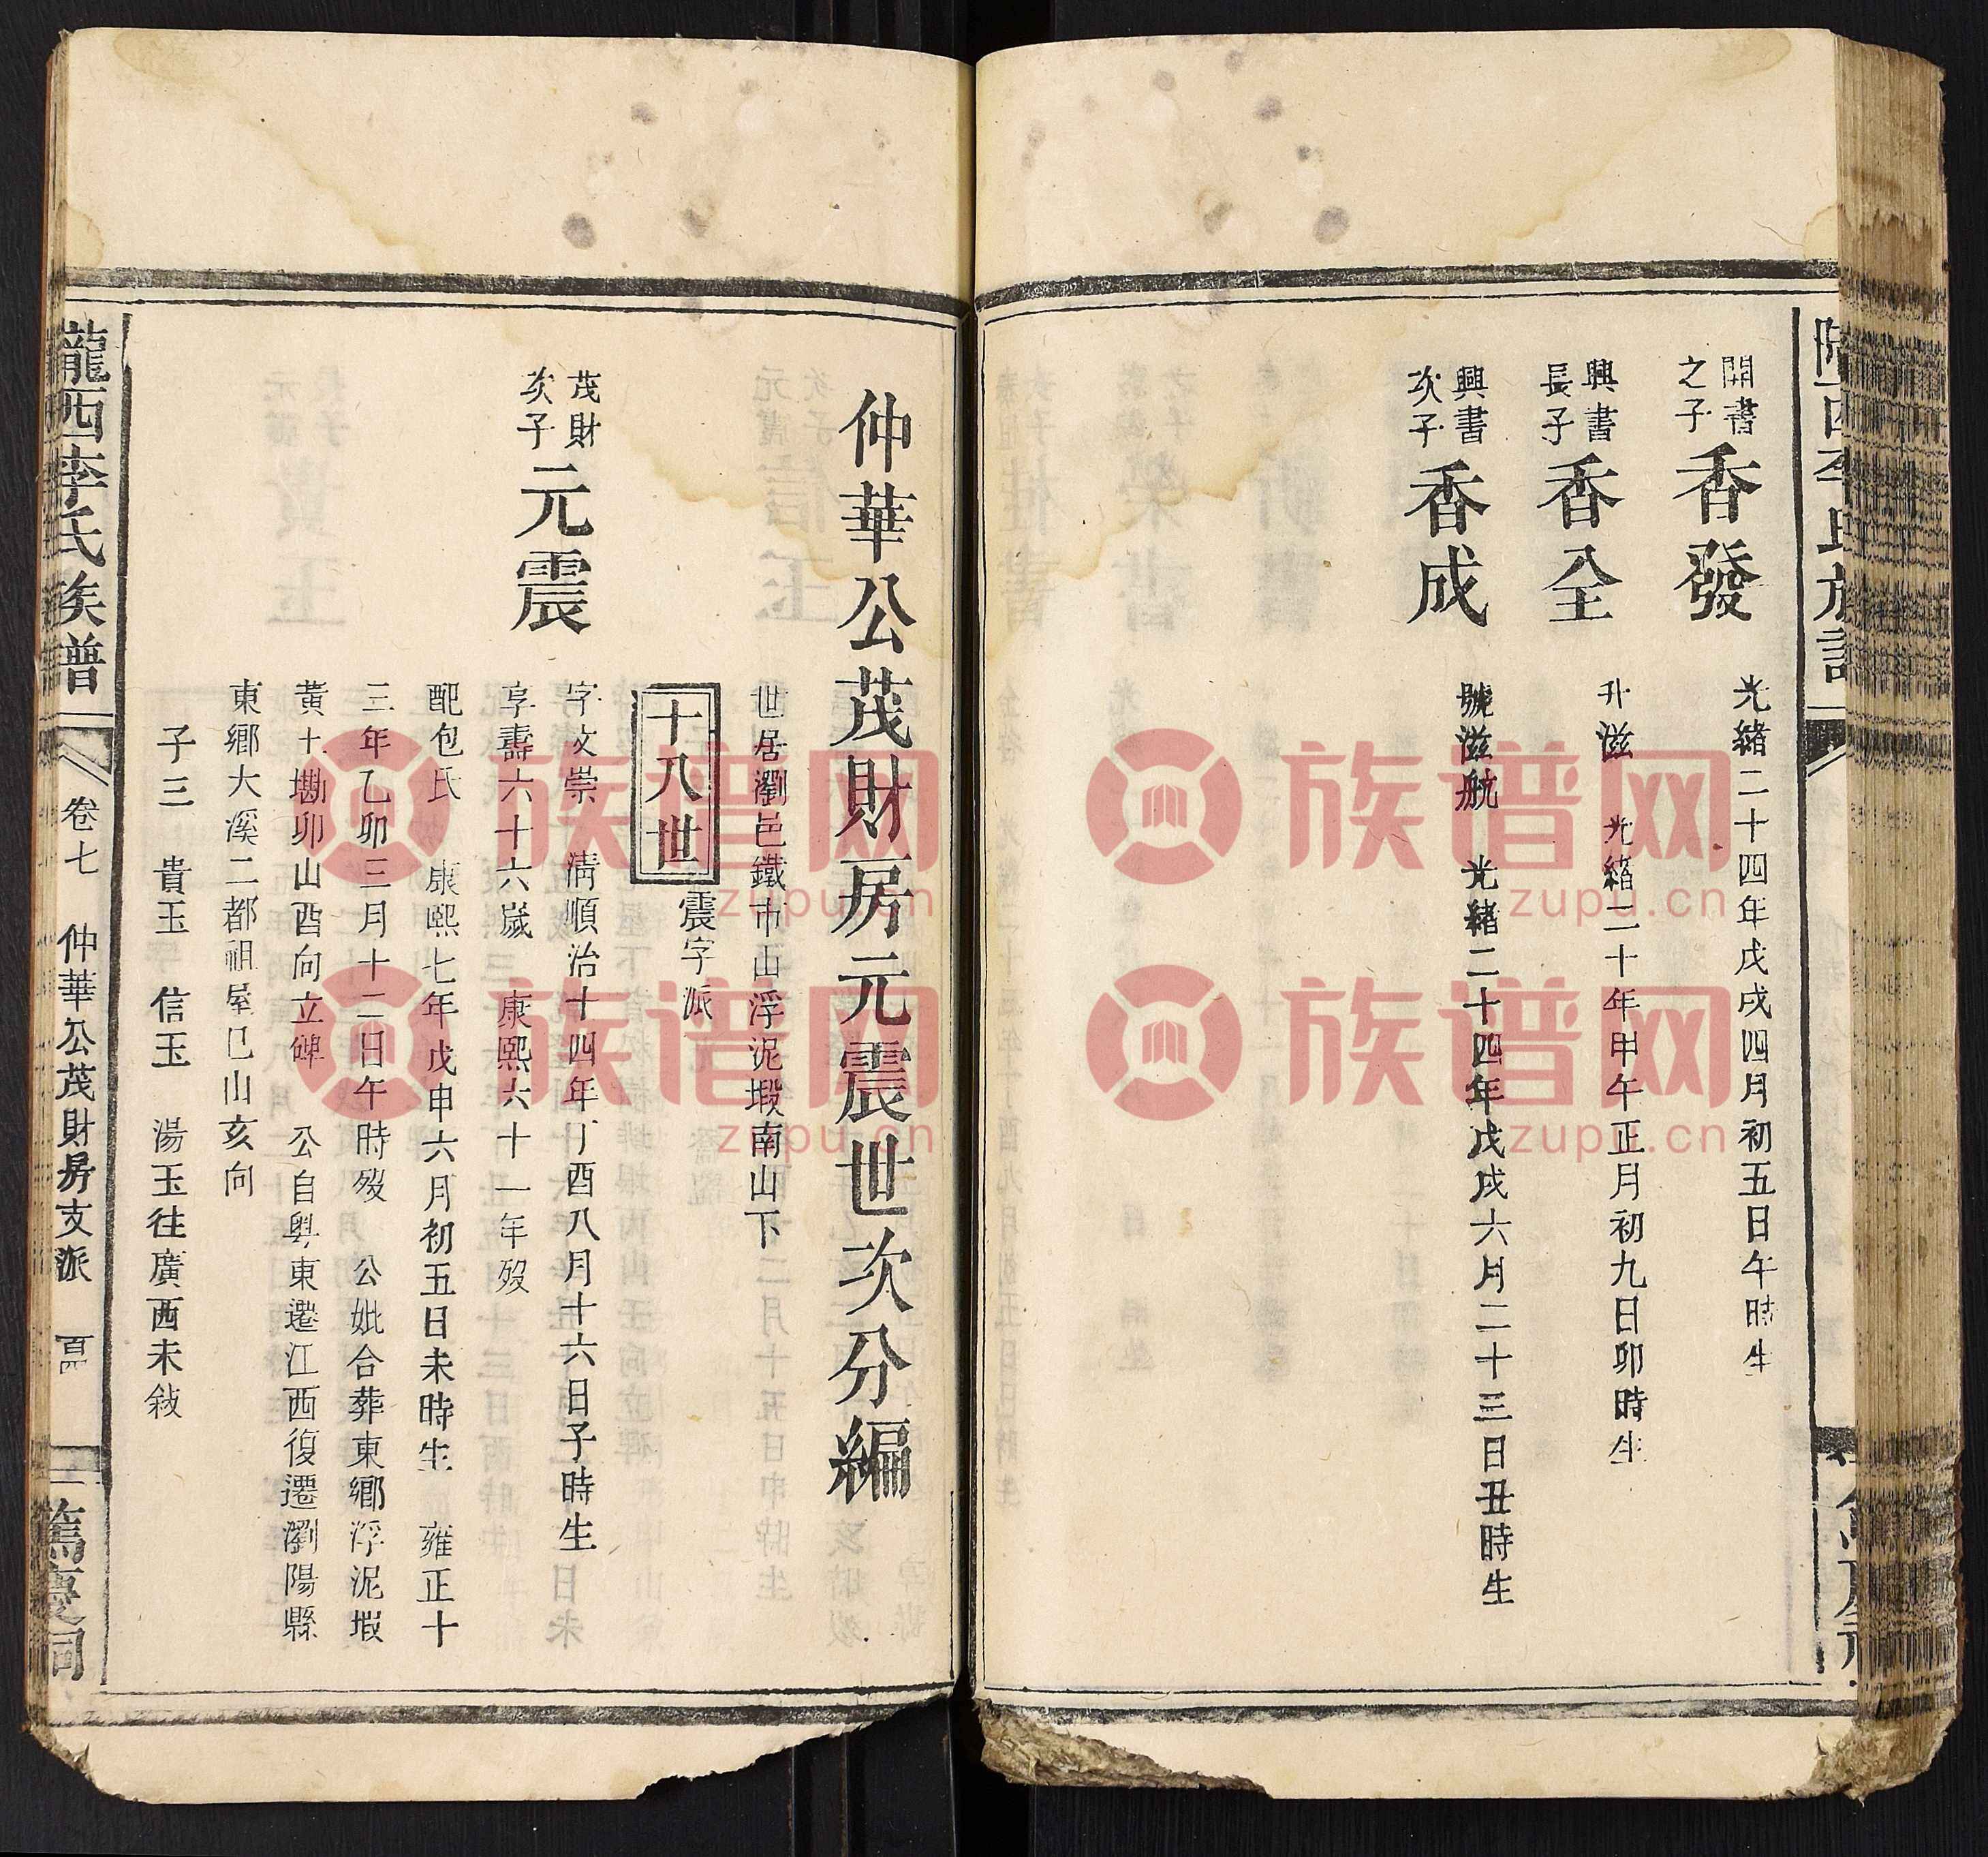 開書
之子
香發
光緒二十四年戊戌四月初五日午時生
興書
長子
香全
升滋 光緒二十年甲午正月初九日卯時生
興書
次子
香成
號滋航 光緒二十四年戊戌六月二十三日丑時生
仲華公茂財房元震世次分編
世居瀏邑鐵市山浮泥塅南山下
十八世
震字派
茂財
次子
元震
字文崇 清順治十四年丁酉八月十六日子時生
享壽六十六歲 康熙六十一年歿
配包氏 康熙七年戊申六月初五日未時生 雍正十
三年乙卯三月十二日午時歿 公妣合葬東鄉浮泥塅
黃土墈卯山酉向立碑 公自粵東遷江西復遷瀏陽縣
東鄉大溪二都祖屋巳山亥向
子三 貴玉 信玉 湯玉往廣西未敍
隴西李氏族譜
卷七 仲華公茂財房支派
篤慶祠
族谱网
zupu.cn
族谱网
zupu.cn
族谱网
zupu.cn
族谱网
zupu.cn